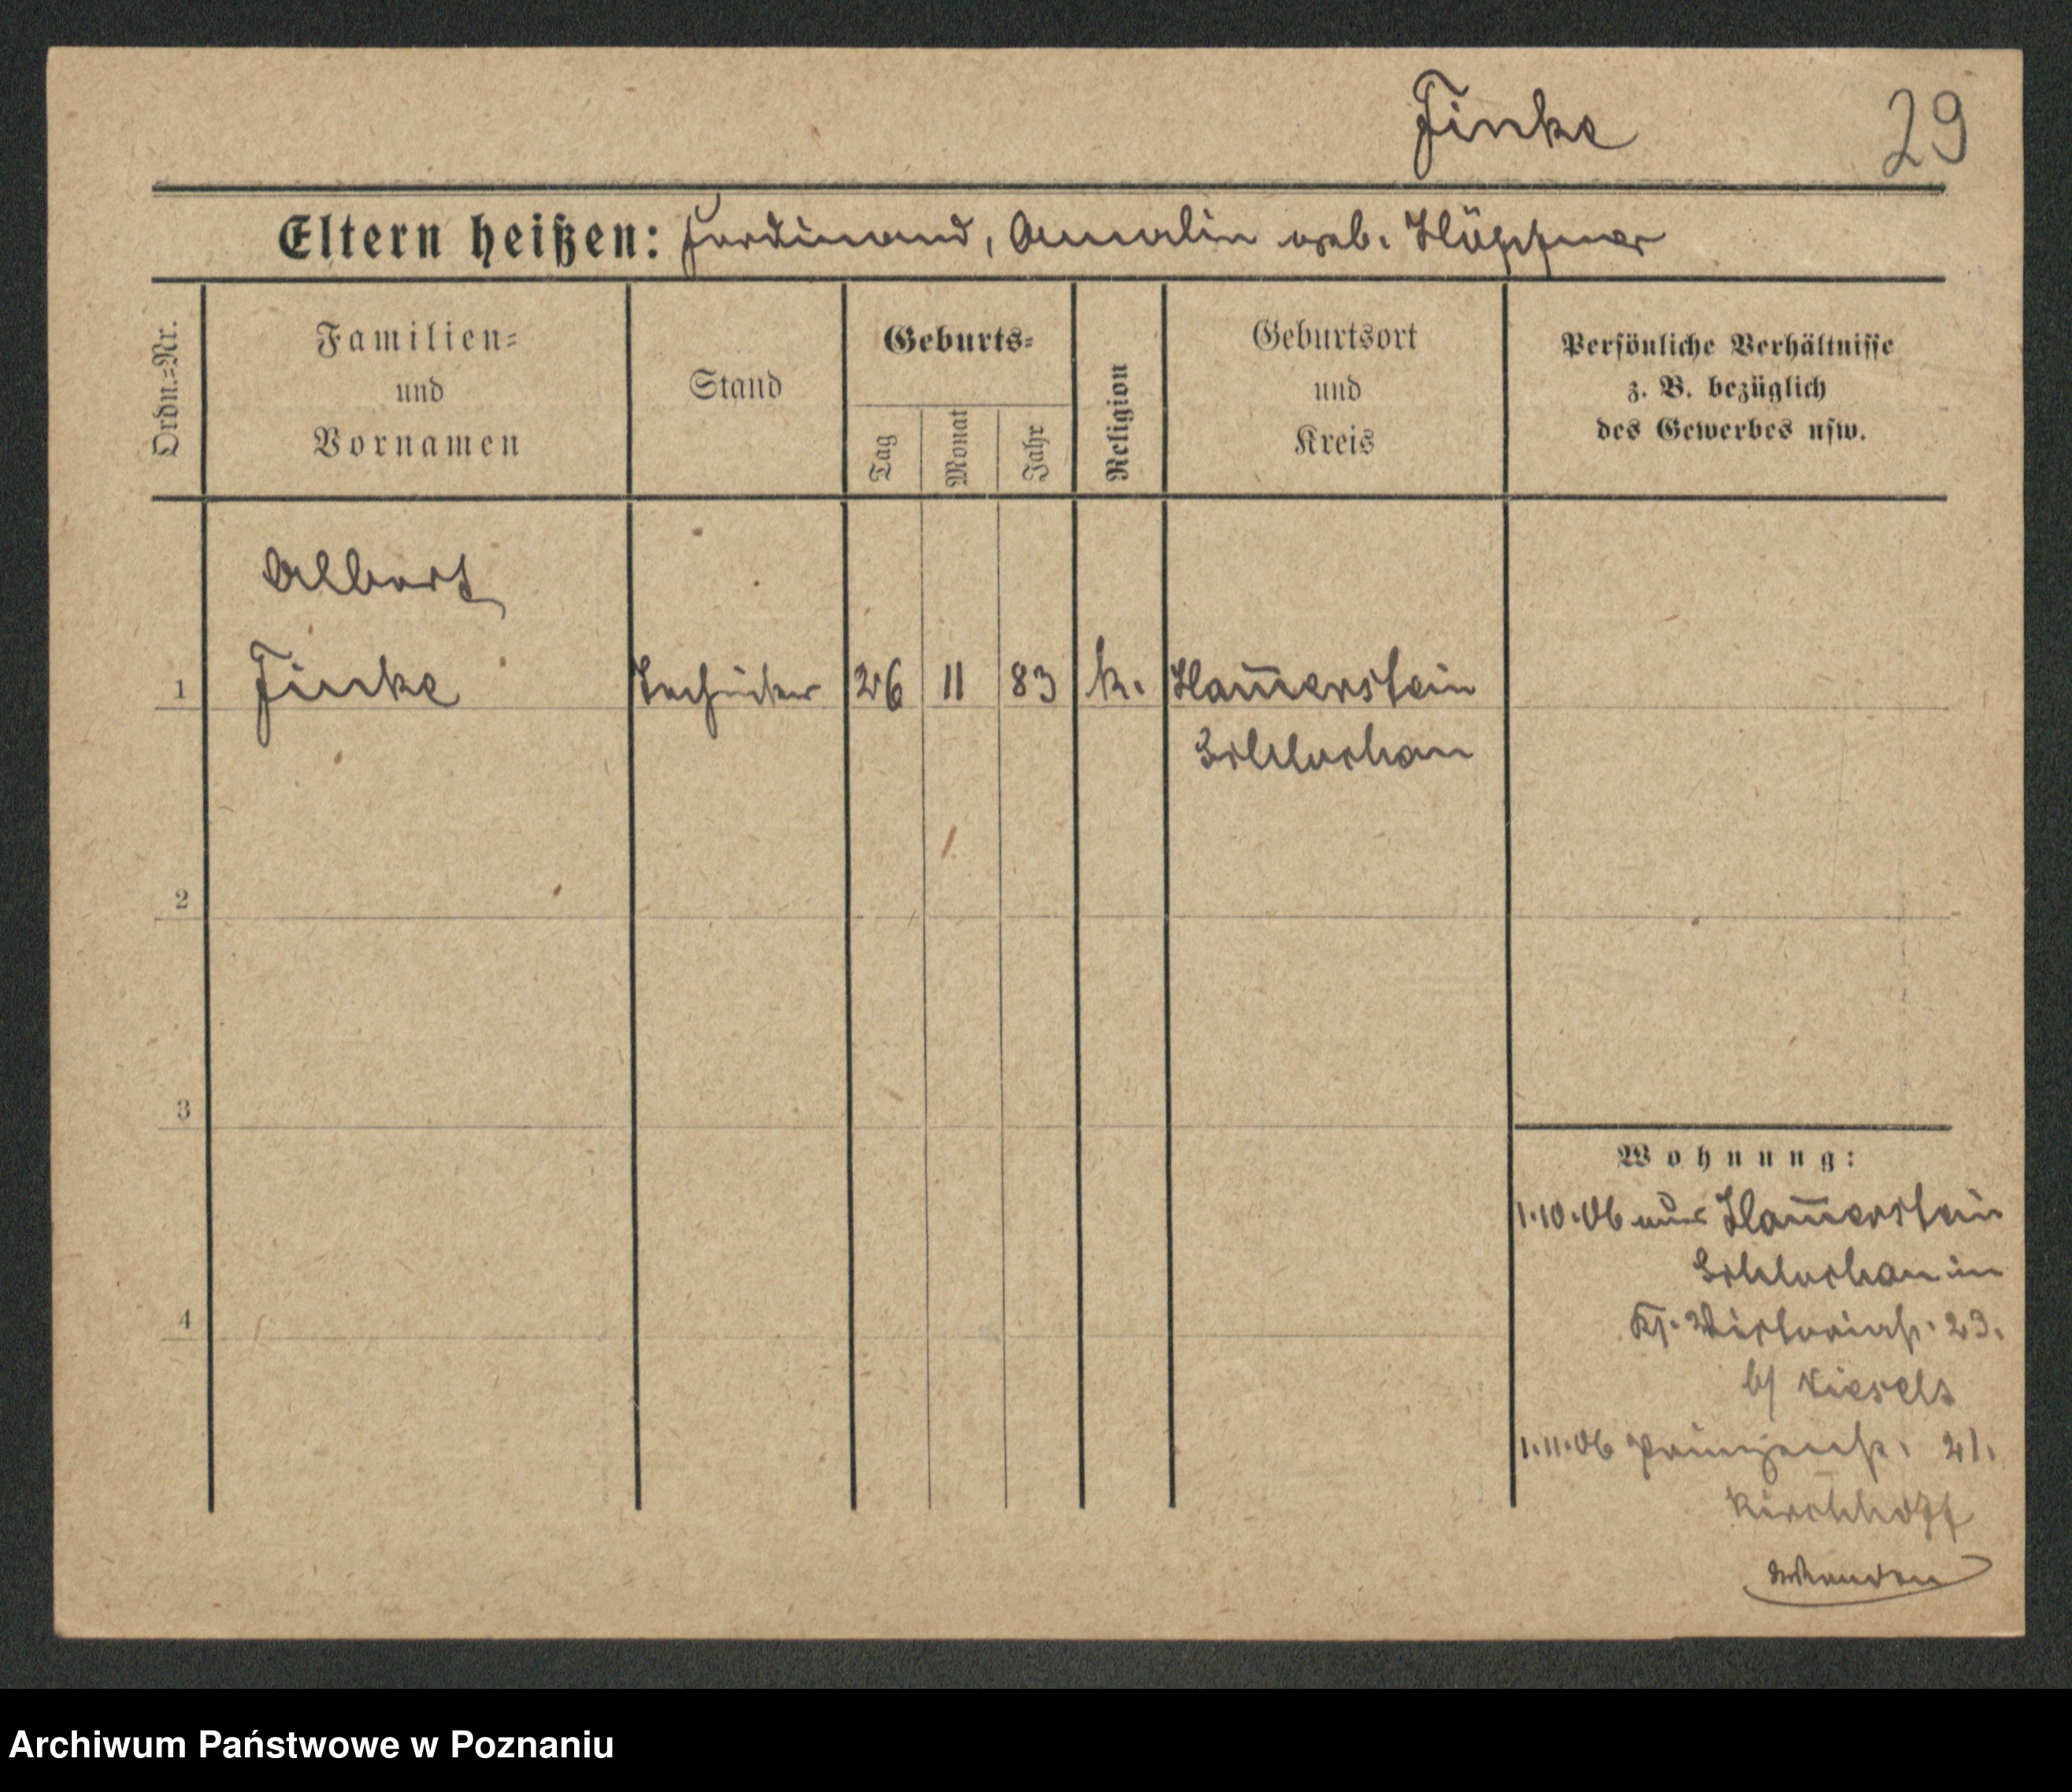 Finke
29
Eltern heißen: Ferdinand, Amalie geb. Höppner
Ordn.=Nr.
Familien=
und
Vornamen
Stand
Geburts=
Tag
Monat
Jahr
Religion
Geburtsort
und
Kreis
Persönliche Verhältnisse
z. B. bezüglich
des Gewerbes usw.
Albert
1 Finke Techniker 26 11 83 k. Ham̅erstein
Schlochau
2
3
4
Wohnung:
1.10.06 aus Ham̅erstein
Schlochau in
Victoriastr. 23.
b/
1.11.06 Prinzenstr. 21.
Kirchhoff
Archiwum Państwowe w Poznaniu